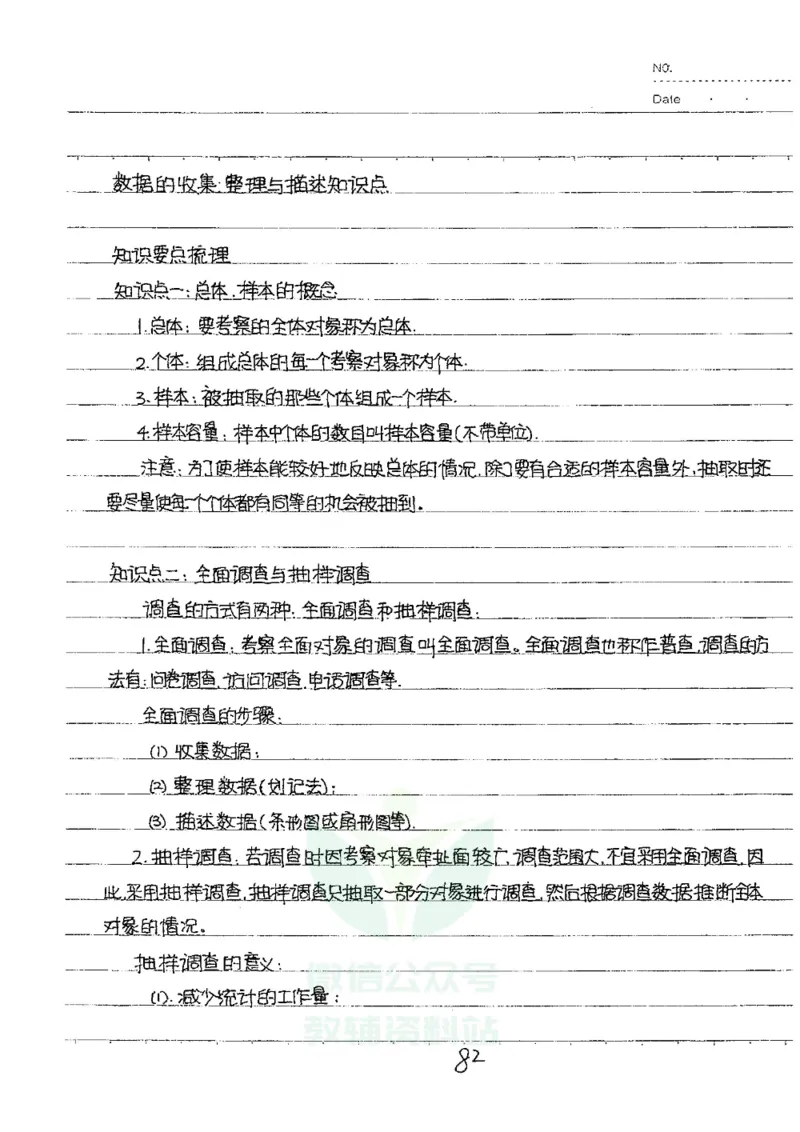 NO.
Date
数据的收集:整理与描述知识点
知识要点梳理
知识点一:总体.样本的概念
1.总体:要考察的全体对象称为总体.
2.个体:组成总体的每一个考察对象称为个体.
3.样本:被抽取的那些个体组成一个样本.
4.样本容量:样本中个体的数目叫样本容量(不带单位).
注意:为了使样本能较好地反映总体的情况.除了要有合适的样本容量外,抽取时还
要尽量使每一个个体都有同等的机会被抽到。
知识点二:全面调查与抽样调查
调查的方式有两种.全面调查和抽样调查:
1.全面调查:考察全面对象的调查叫全面调查。全面调查也称作普查,调查的方
法有:问卷调查.访问调查.电话调查等.
全面调查的步骤:
(1)收集数据;
(2)整理数据(划记法);
(3)描述数据(条形图或扇形图等).
2.抽样调查:若调查时因考察对象牵扯面较广,调查范围大,不宜采用全面调查.因
此.采用抽样调查.抽样调查只抽取一部分对象进行调查,然后根据调查数据推断全体
对象的情况。
抽样调查的意义:
(1).减少统计的工作量;
微信公众号
教辅资料站
82